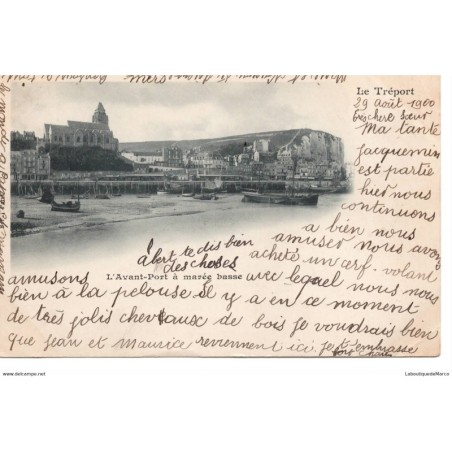 Le Tréport
29 Août 1900
très chère sœur
Ma tante
Jacquemin
est partie
hier nous
continuons
a bien nous
amuser nous avons
acheté un cerf-volant
avec lequel nous nous
amusons
bien à la pelouse il y a en ce moment
de très jolis chevaux de bois je voudrais bien
que Jean et Maurice reviennent ici. Je t'embrasse
Albert te dis bien
des choses
L'Avant-Port à marée basse
www.delcampe.net
LaboutiquedeMarco